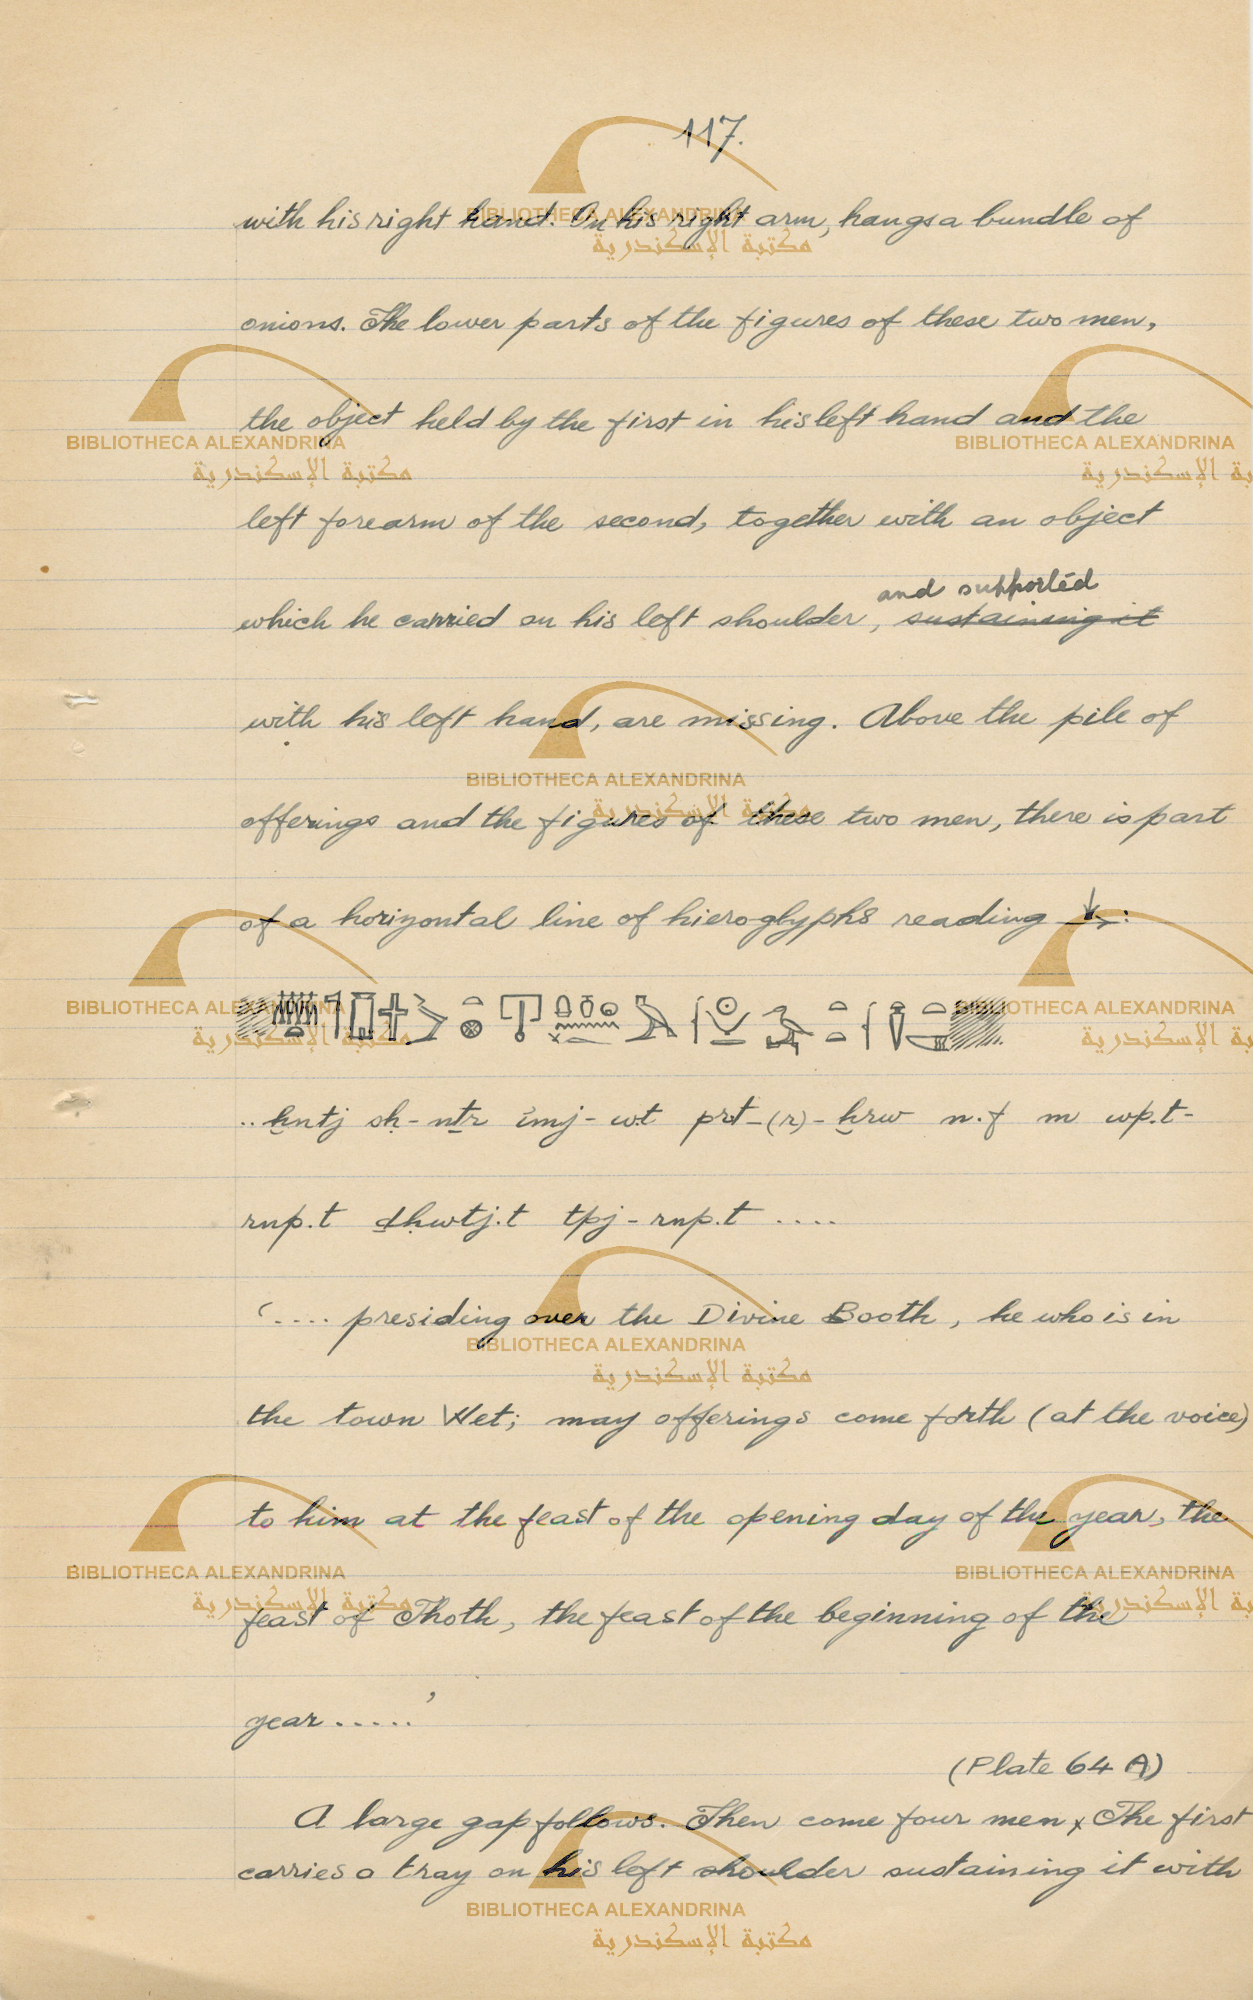 117.
with his right hand. On his right arm, hangs a bundle of
onions. The lower parts of the figures of these two men,
the object held by the first in his left hand and the
left forearm of the second, together with an object
and supported
which he carried on his left shoulder, sustaining it
with his left hand, are missing. Above the pile of
offerings and the figures of these two men, there is part
of a horizontal line of hieroglyphs reading :
.. ḫntj sḥ-nṯr imj-wt prt-(r)-ḫrw n.f m wp.t-
rnp.t ḏḥwtj.t tpj-rnp.t ....
‘.... presiding over the Divine Booth, he who is in
the town Wet; may offerings come forth (at the voice)
to him at the feast of the opening day of the year, the
feast of Thoth, the feast of the beginning of the
year .....’
(Plate 64 A)
A large gap follows. Then come four men x The first
carries a tray on his left shoulder sustaining it with
BIBLIOTHECA ALEXANDRINA
مكتبة الإسكندرية